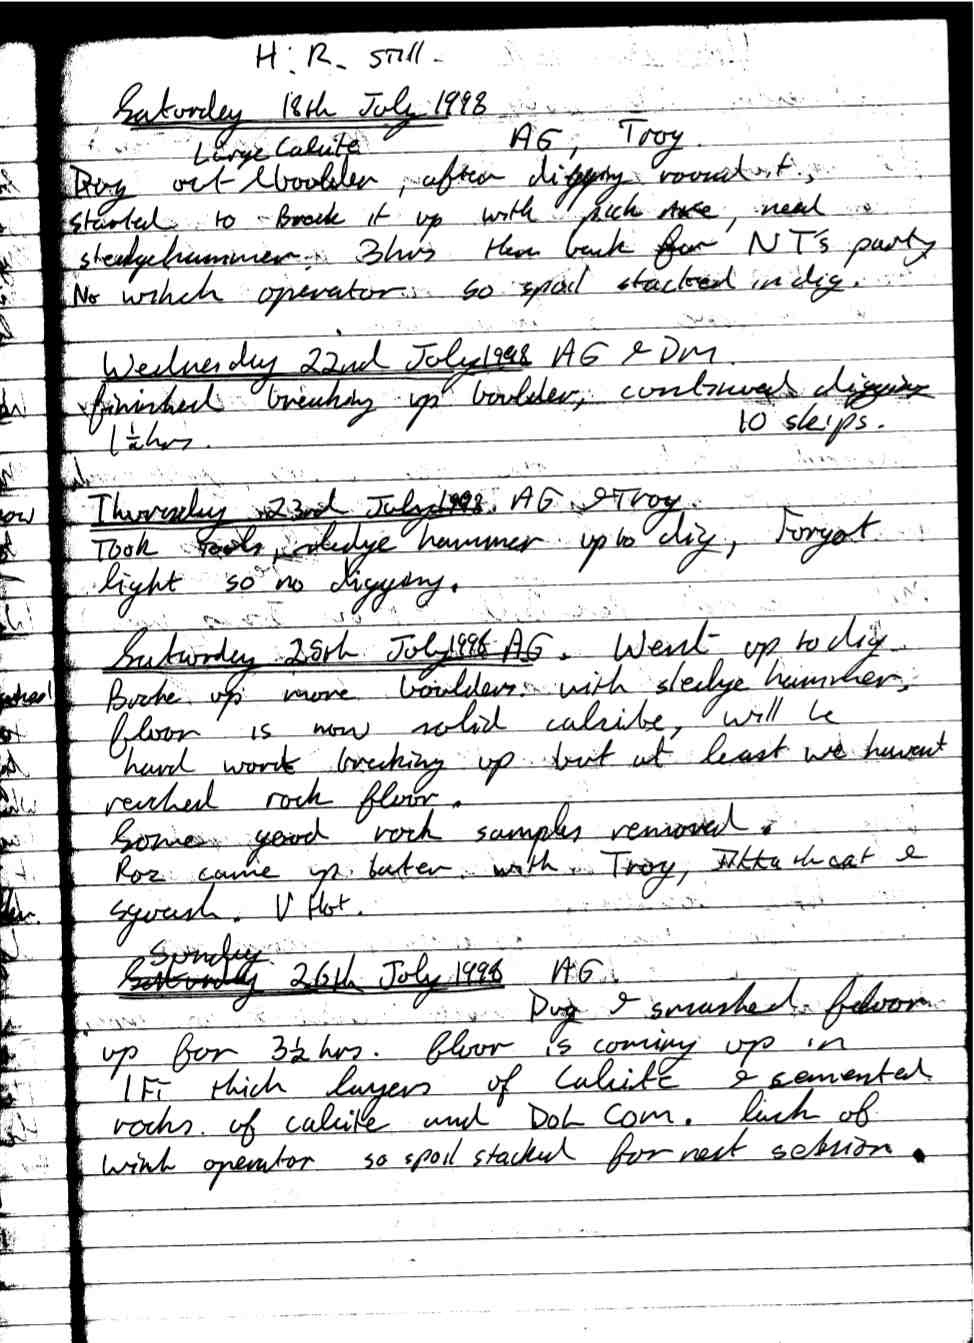 H. R. Still.
Saturday 18th July 1998
AG, Troy.
Large Calcite
Dug out boulder, after digging round it,
started to Break it up with pick Axe, need
sledgehammer. 3hrs then back for NT's party
No winch operator so spoil stacked in dig.
Wednesday 22nd July 1998 AG & DM.
finished breaking up boulder, continued digging
1½hrs. 10 skips.
Thursday 23rd July 1998. AG & Troy.
Took tools, sledge hammer up to dig, Forgot
light so no digging.
Saturday 25th July 1998 AG. Went up to dig
Broke up more boulders with sledge hammer,
floor is now solid calcite, will be
hard work breaking up but at least we havent
reached rock floor.
Some good rock samples removed.
Roz came up later with Troy, &
squash. V Hot.
Sunday
Saturday 26th July 1998 AG.
Dug & smashed floor
up for 3½ hrs. floor is coming up in
1Ft thick layers of Calcite & cemented
rocks of calcite and Dol Com. lack of
winh operator so spoil stacked for next session.